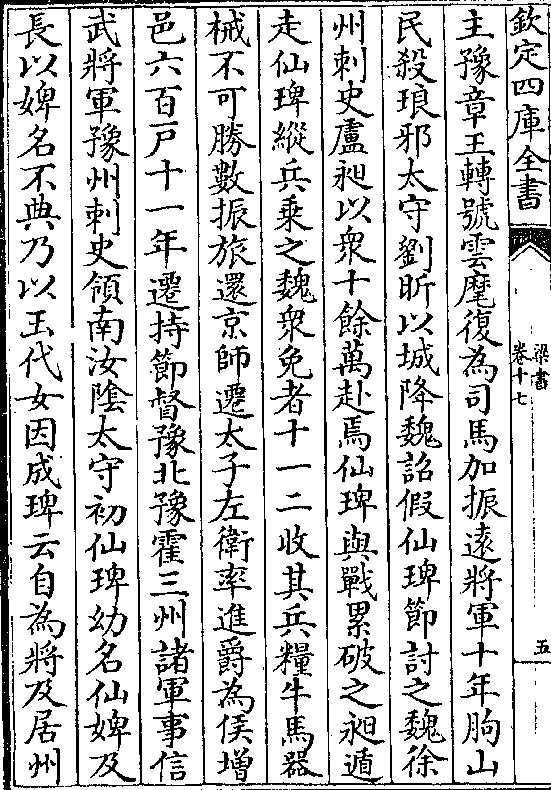 欽定四庫全書
梁書
卷十七
五
主豫章王轉號雲麾復為司馬加振遠將軍十年朐山
民殺琅邪太守劉昕以城降魏詔假仙琕節討之魏徐
州刺史盧昶以衆十餘萬赴焉仙琕與戰累破之昶遁
走仙琕縱兵乗之魏衆免者十一二收其兵糧牛馬器
械不可勝數振旅還京師遷太子左衛率進爵為侯增
邑六百戸十一年遷持節督豫北豫霍三州諸軍事信
武將軍豫州刺史領南汝隂太守初仙琕幼名仙婢及
長以婢名不典乃以玉代女因成琕云自為將及居州